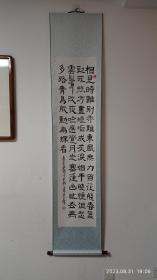 相見時難別亦難東風無力百花殘春蠶
到死絲方盡蠟炬成灰淚始乾曉鏡但愁
雲鬢改夜吟應覺月光寒蓬山此去無
多路青鳥殷勤為探看
2023.08.31